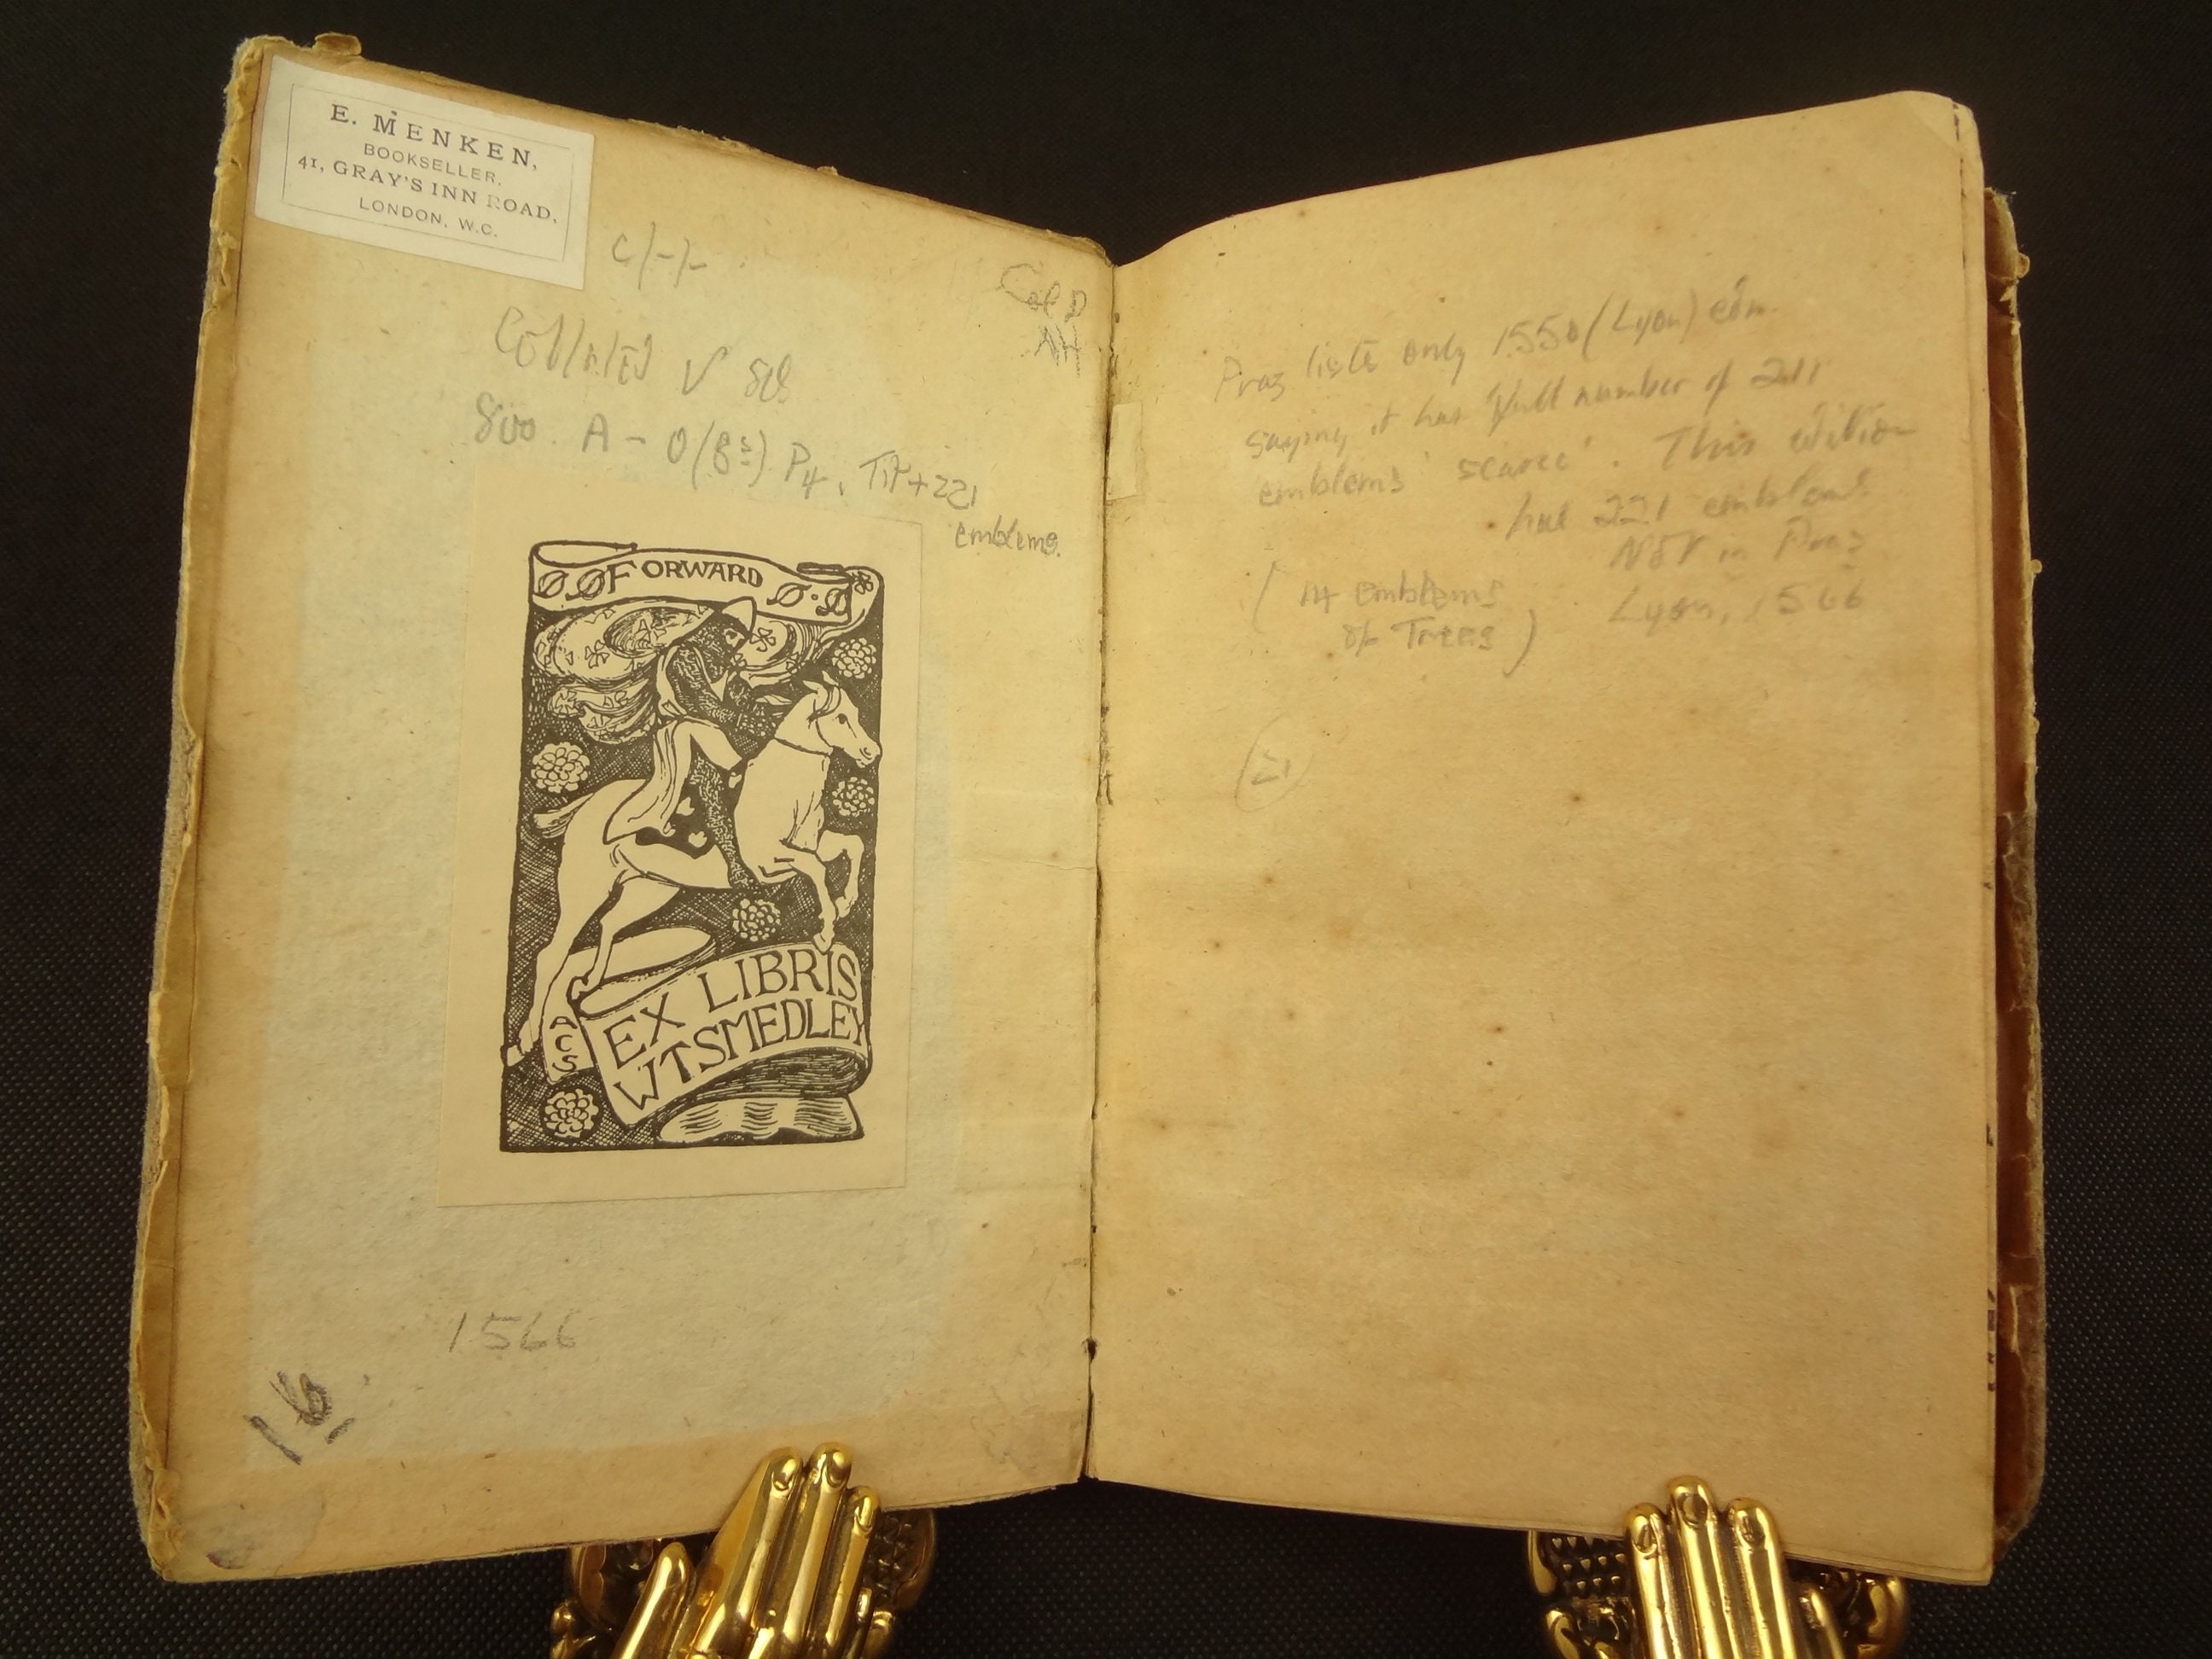 E. MENKEN,
BOOKSELLER,
41, GRAY'S INN ROAD,
LONDON, W.C.
Collated
8vo. A - O (8s) P4, Tit + 221
emblems.
FORWARD
EX LIBRIS
WTSMEDLEY
ACS
1566
16.
Praz lists only 1550 (Lyon) edn.
saying it has 'full number of 211
emblems' 'scarce'. This edition
has 221 emblems.
Not in Praz
Lyon, 1566
(14 emblems
of Trees)
21